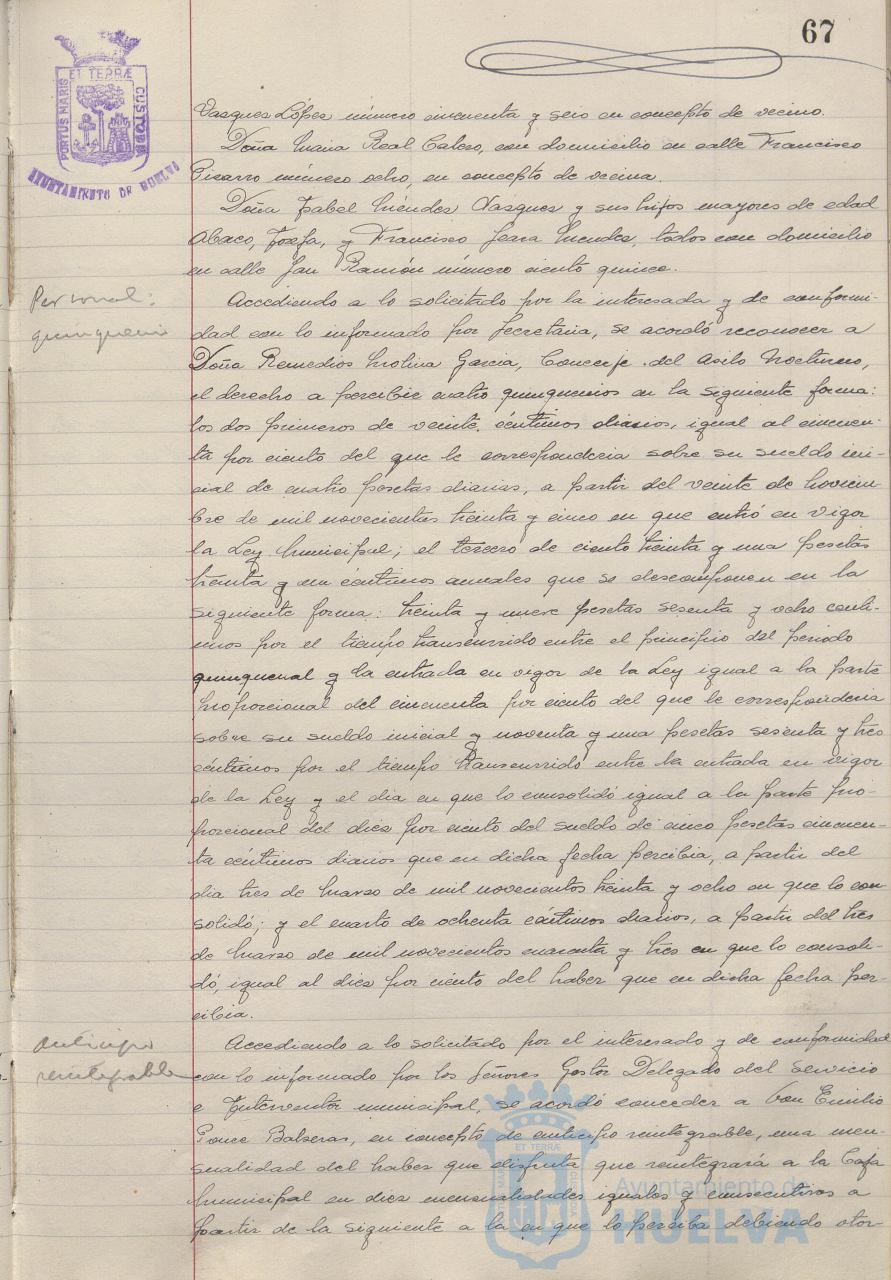 67
ET TERRÆ
PORTUS MARIS
CUSTODIA
AYUNTAMIENTO DE HUELVA
Vasques López número cincuenta y seis en concepto de vecino.
Doña Maria Real Calero, con domicilio en calle Francisco
Pizarro número ocho, en concepto de vecina.
Doña Isabel Méndes Vasques y sus hijos mayores de edad
Josefa, y Francisco Mendes, todos con domicilio
en calle San Ramón número ciento quince.
Personal:
quinquenios
Accediendo a lo solicitado por la interesada y de conformi-
dad con lo informado por Secretaria, se acordó reconocer a
Doña Remedios Molina Garcia, Conserje del Asilo Nocturno,
el derecho a percibir cuatro quinquenios en la siguiente forma:
los dos primeros de veinte céntimos diarios, igual al cincuen-
ta por ciento del que le corresponderia sobre su sueldo ini-
cial de cuatro pesetas diarias, a partir del veinte de Noviem-
bre de mil novecientos treinta y cinco en que entró en vigor
la Ley Municipal; el tercero de ciento treinta y una pesetas
treinta y un céntimos anuales que se descomponen en la
siguiente forma: treinta y nueve pesetas sesenta y ocho cénti-
mos por el tiempo transcurrido entre el principio del periodo
quinquenal y la entrada en vigor de la Ley igual a la parte
proporcional del cincuenta por ciento del que le corresponderia
sobre su sueldo inicial y noventa y una pesetas sesenta y tres
céntimos por el tiempo transcurrido entre la entrada en vigor
de la Ley y el dia en que lo consolidó igual a la parte pro-
porcional del dies por ciento del sueldo de cinco pesetas cincuen-
ta céntimos diarios que en dicha fecha percibia, a partir del
dia tres de Marzo de mil novecientos treinta y ocho en que lo con
solidó; y el cuarto de ochenta céntimos diarios, a partir del tres
de Marzo de mil novecientos cuarenta y tres en que lo consoli-
dó, igual al dies por ciento del haber que en dicha fecha per-
cibia.
Anticipo
reintegrable
Accediendo a lo solicitado por el interesado y de conformidad
con lo informado por los Señores Gestor Delegado del Servicio
e Interventor municipal, se acordó conceder a Don Emilio
Ponce Balseras, en concepto de anticipo reintegrable, una men-
sualidad del haber que disfruta que reintegrará a la Caja
Municipal en dies mensualidades iguales y consecutivas a
partir de la siguiente a la en que lo perciba debiendo otor-
Ayuntamiento de
HUELVA